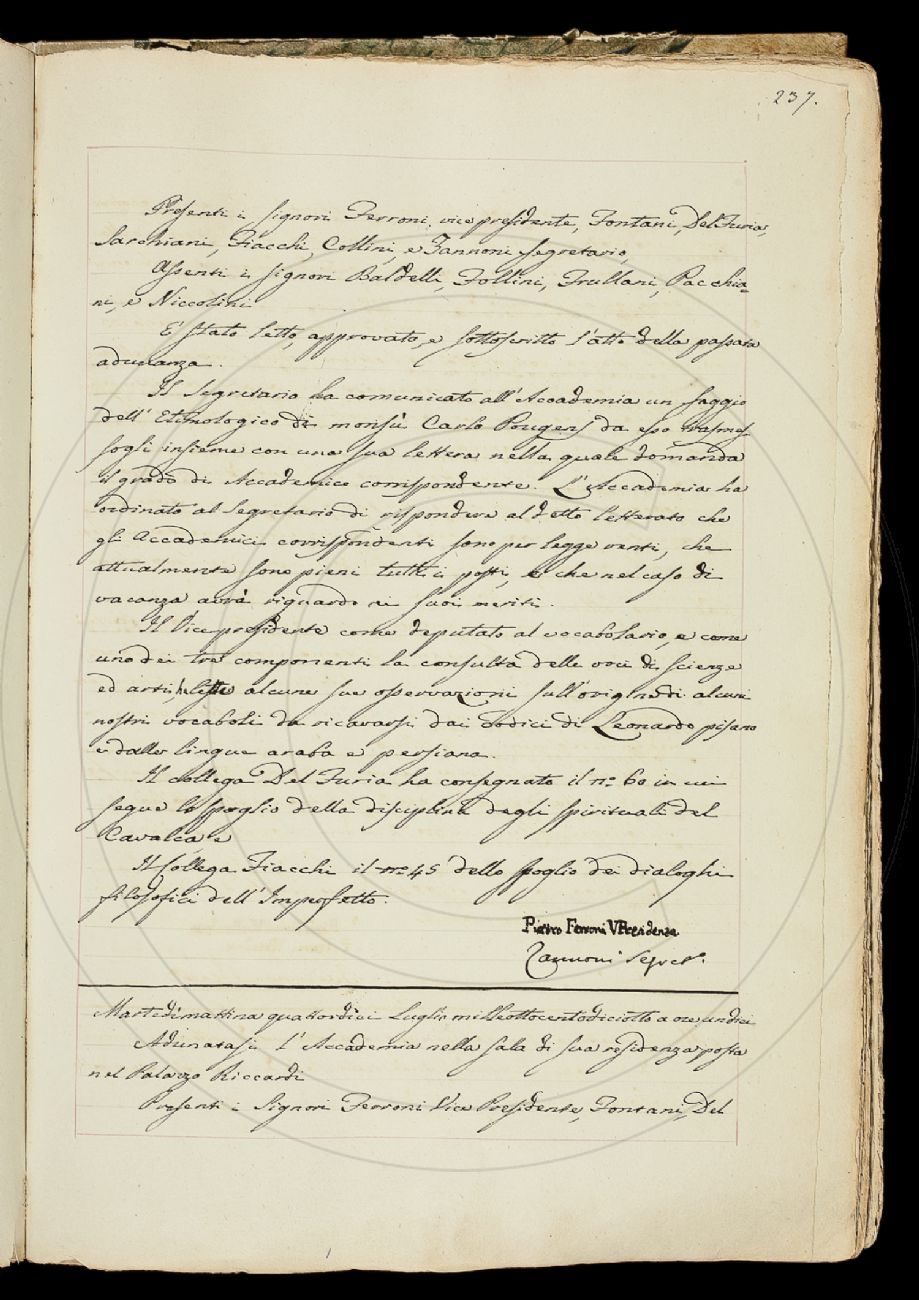 237.
Presenti i Signori Ferroni vice presidente, Fontani, Del Furia,
Sarchiani, Fiacchi, Collini, e Zannoni segretario,
Assenti i signori Baldelli, Follini, Frullani, Pacchia=
ni, e Niccolini
E' stato letto, approvato, e sottoscritto l'atto della passata
adunanza.
Il Segretario ha comunicato all'Accademia un saggio
dell'Etimologico di monsù Carlo Pougens da esso trasmes-
sogli insieme con una sua lettera nella quale domanda
il grado di Accademico corrispondente. L'Accademia ha
ordinato al Segretario di rispondere al detto letterato che
gli Accademici corrispondenti sono per legge venti, che
attualmente sono pieni tutti i posti, e che nel caso di
vacanza avrà riguardo ai suoi meriti.
Il Vicepresidente come deputato al vocabolario, e come
uno dei tre componenti la consulta delle voci di scienze
ed arti, ha lette alcune sue osservazioni sull'origine di alcuni
nostri vocaboli da ricavarsi dai Codici di Leonardo pisano
e dalle lingue araba e persiana.
Il collega Del Furia ha consegnato il n.º 60 in cui
segue lo spoglio della disciplina degli spirituali del
Cavalca e
Il Collega Fiacchi il n.º 45 dello spoglio dei dialoghi
filosofici dell'Imperfetto.
Pietro Ferroni VPresidente
Zannoni Segret.º
Martedì mattina quattordici Luglio milleottocentodiciotto a ore undici
Adunatasi l'Accademia nella sala di sua residenza posta
nel Palazzo Riccardi
Presenti i Signori Ferroni Vice Presidente, Fontani, Del